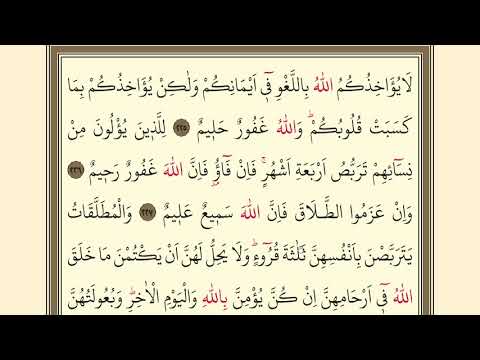 لَا يُؤَاخِذُكُمُ اللّٰهُ بِاللَّغْوِ فٖٓي اَيْمَانِكُمْ وَلٰكِنْ يُؤَاخِذُكُمْ بِمَا
كَسَبَتْ قُلُوبُكُمْؕ وَاللّٰهُ غَفُورٌ حَلٖيمٌ ﴿٢٢٥﴾ لِلَّذٖينَ يُؤْلُونَ مِنْ
نِسَٓائِهِمْ تَرَبُّصُ اَرْبَعَةِ اَشْهُرٍۚ فَاِنْ فَٓاؤُ۫ فَاِنَّ اللّٰهَ غَفُورٌ رَحٖيمٌ ﴿٢٢٦﴾
وَاِنْ عَزَمُوا الطَّلَاقَ فَاِنَّ اللّٰهَ سَمٖيعٌ عَلٖيمٌ ﴿٢٢٧﴾ وَالْمُطَلَّقَاتُ
يَتَرَبَّصْنَ بِاَنْفُسِهِنَّ ثَلٰثَةَ قُرُٓوءٍؕ وَلَا يَحِلُّ لَهُنَّ اَنْ يَكْتُمْنَ مَا خَلَقَ
اللّٰهُ فٖٓي اَرْحَامِهِنَّ اِنْ كُنَّ يُؤْمِنَّ بِاللّٰهِ وَالْيَوْمِ الْاٰخِرِؕ وَبُعُولَتُهُنَّ